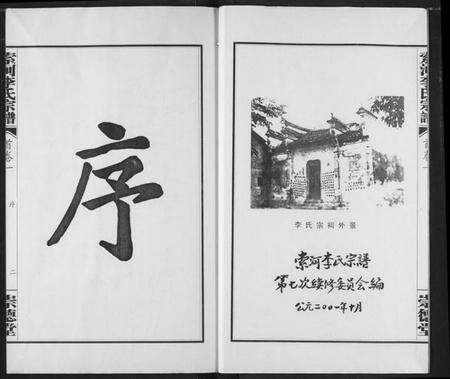 索河李氏宗譜
首卷一
崇德堂
李氏宗祠外景
索河李氏宗譜
第七次續修委員会編
公元二00一年十月
序
索河李氏宗譜
首卷一
序
二
崇德堂